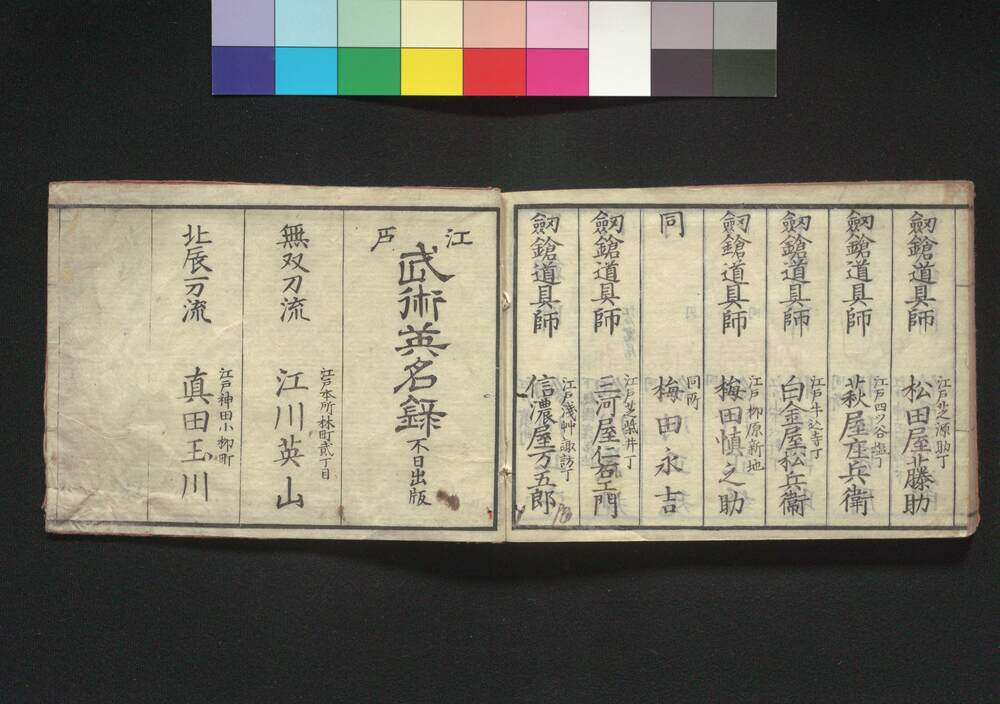 劔鎗道具師 江戸芝源助丁 松田屋勝助
劔鎗道具師 江戸四ツ谷塩丁 萩屋庄兵衛
劔鎗道具師 江戸牛込寺丁 白金屋松兵衛
劔鎗道具師 江戸柳原新地 梅田慎之助
同 同所 梅田永吉
劔鎗道具師 江戸芝柴井丁 三河屋仁右エ門
劔鎗道具師 江戸浅艸諏訪丁 信濃屋万五郎
江戸
武術英名録 不日出版
無双刀流 江戸本所林町貳丁目 江川英山
北辰一刀流 江戸神田小柳町 真田玉川